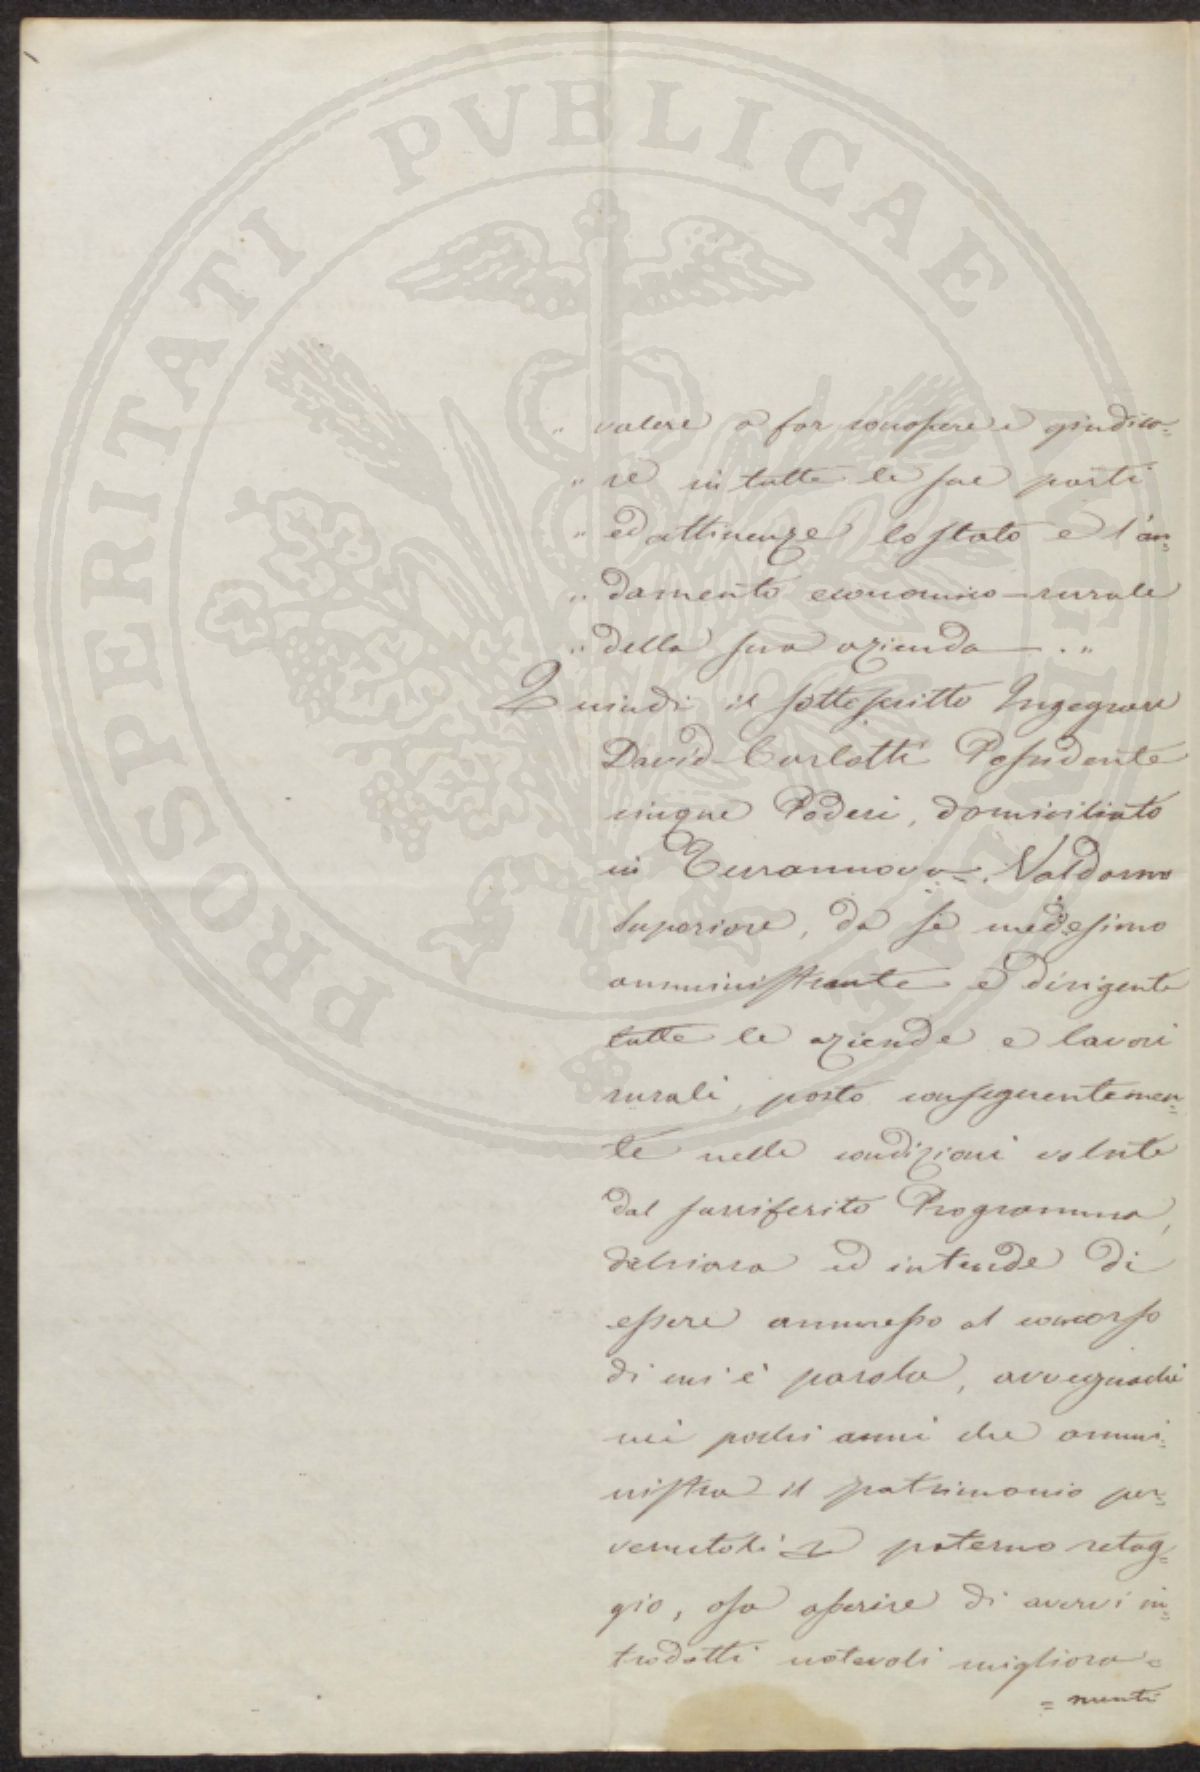 PROSPERITATI PVBLICAE AVGENDAE
" valere a far conoscere e giudica=
" re in tutte le sue parti
" ed attinenze lo stato e l'an=
" damento economico-rurale
" della sua azienda — . "
Quindi il sottoscritto Ingegnere
David Carlotti Possidente
cinque Poderi, domiciliato
in Terranuova Valdarno
Superiore, da se medesimo
amministrante e dirigente
tutte le aziende e lavori
rurali, posto conseguentemen=
te nelle condizioni volute
dal surriferito Programma,
dichiara ed intende di
essere ammesso al concorso
di cui è parola, avvegnachè
nei pochi anni che ammi=
nistra il patrimonio per=
venutoli paterno retag=
gio, osa asserire di avervi in=
trodotti notevoli migliora=
= menti